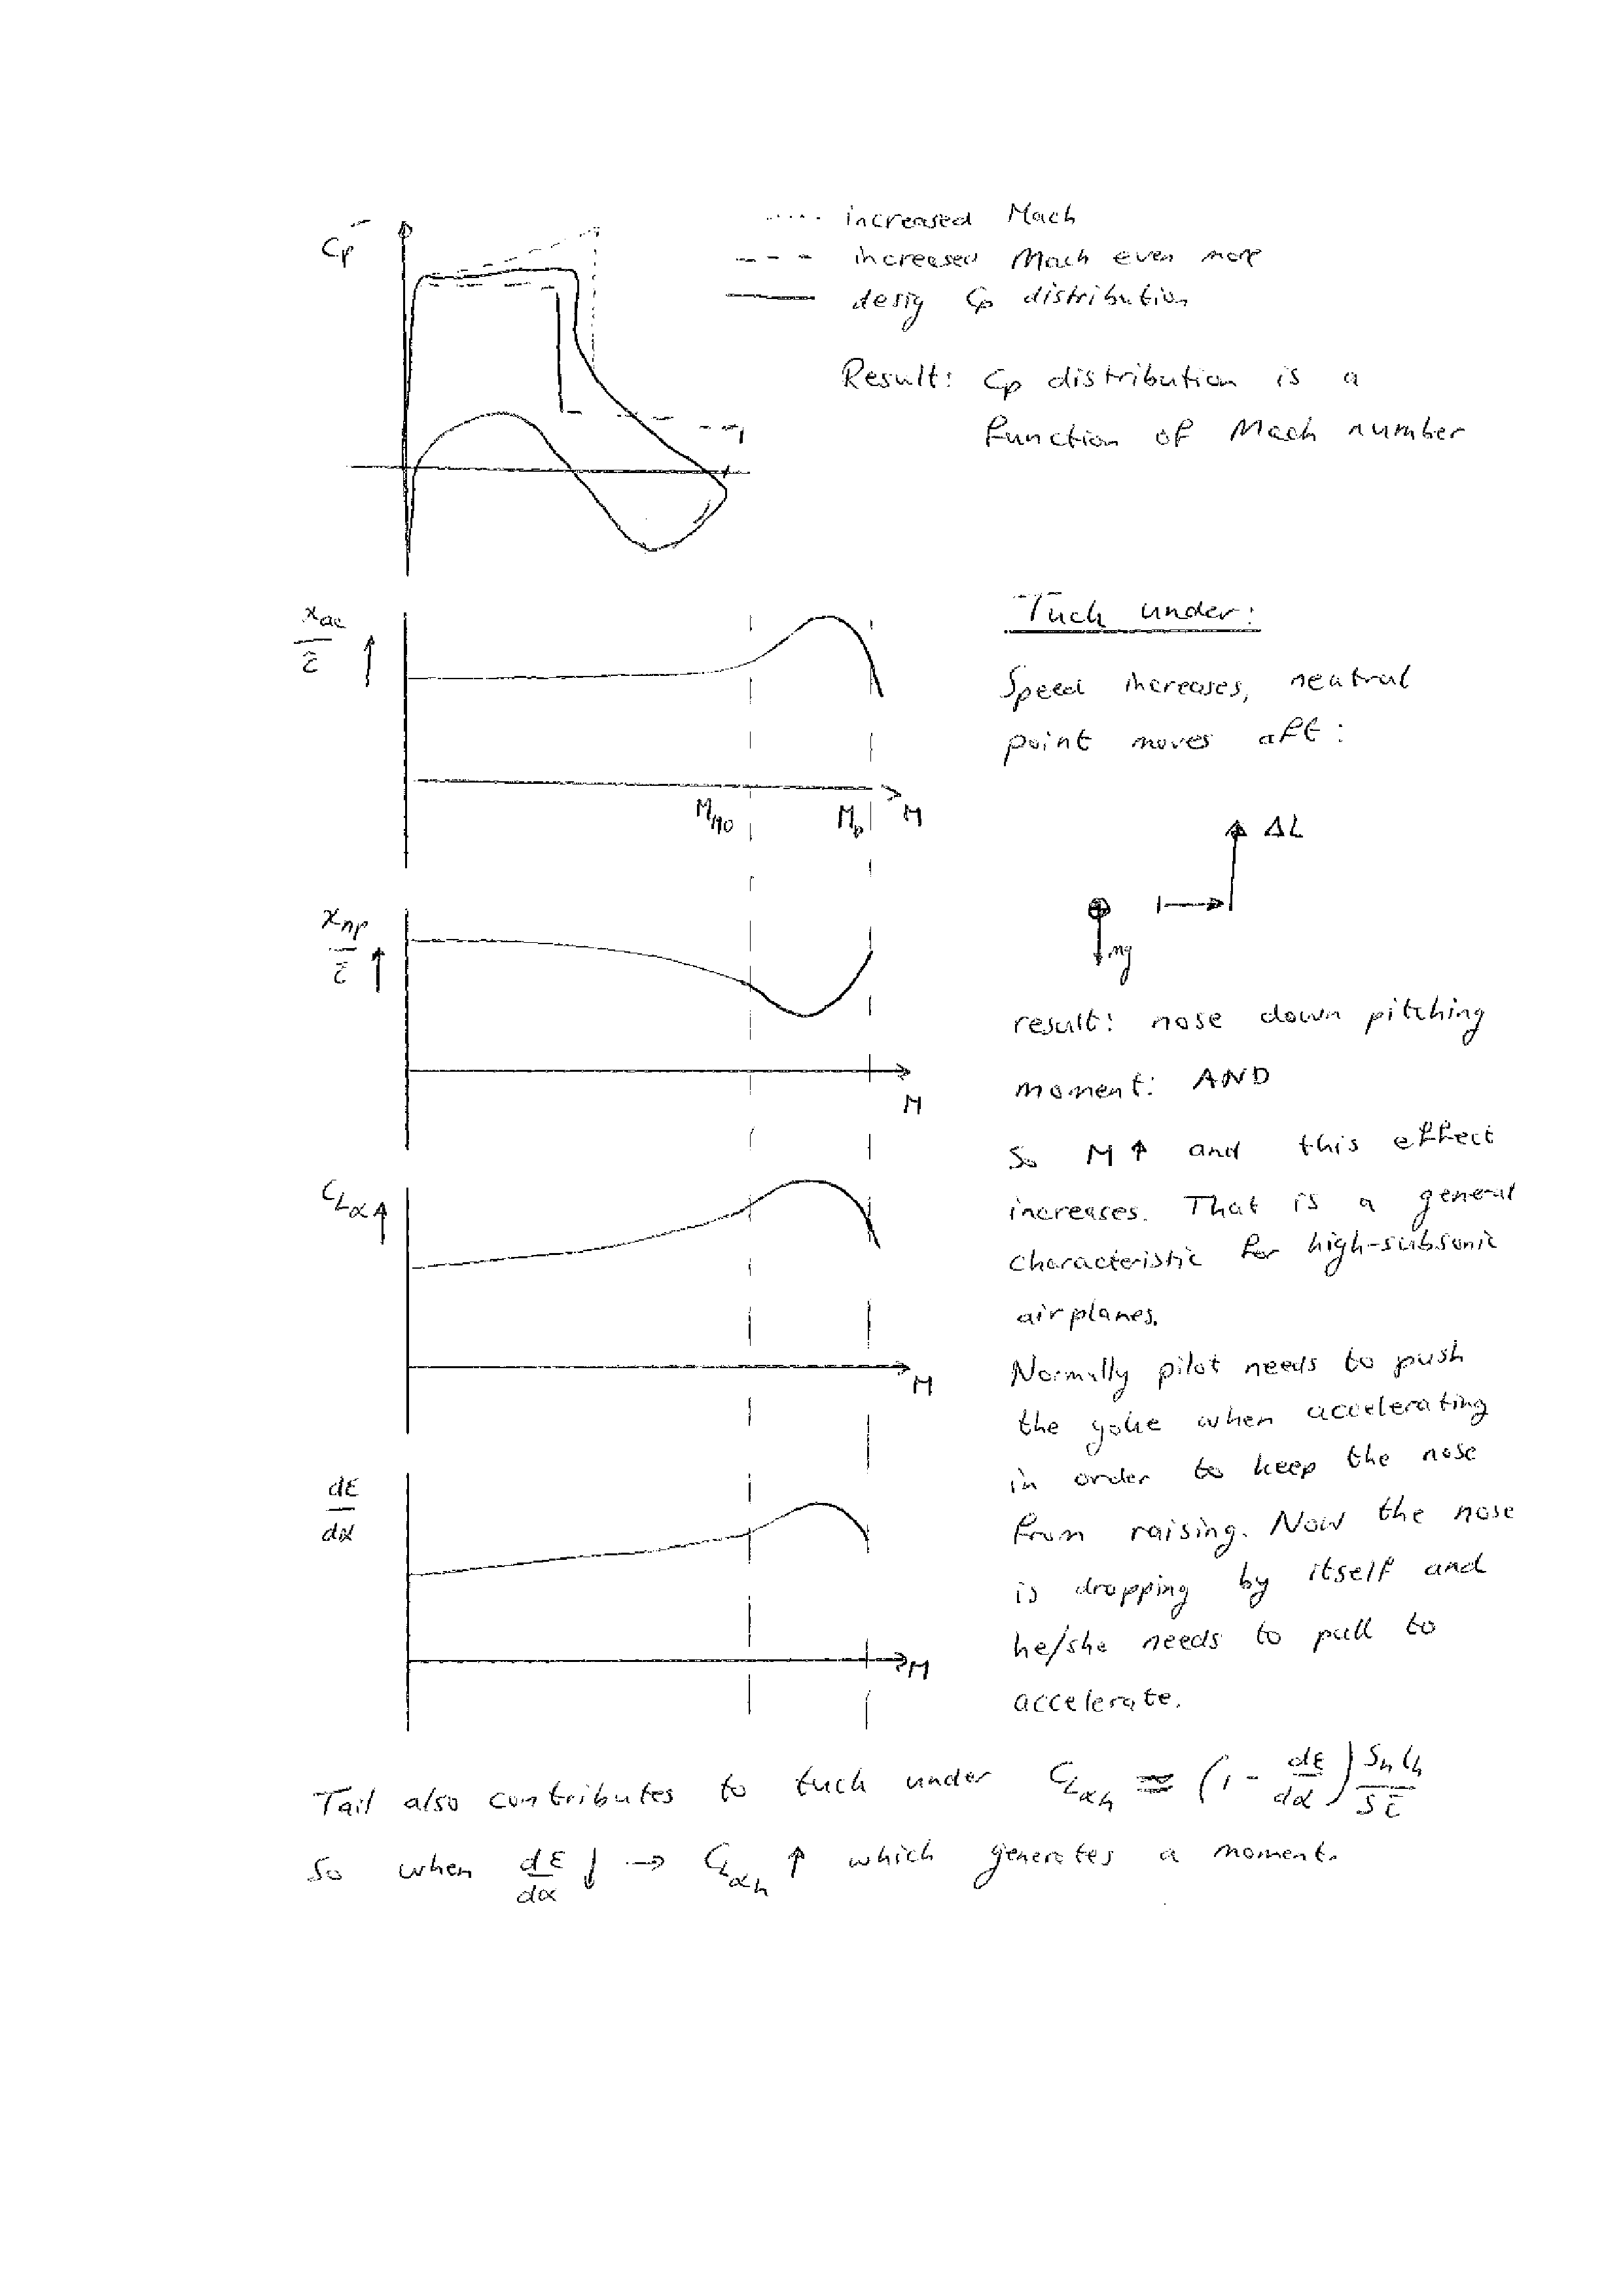 Cp⁻
..... increased Mach
--- increased Mach even more
— desig Cp distribution
Result: Cp distribution is a
function of Mach number
x_ac / c̄ ↑
M_MO M_D M
Tuck under:
Speed increases, neutral
point moves aft:
ΔL
mg
x_np / c̄ ↑
M
result: nose down pitching
moment: AND
So M ↑ and this effect
increases. That is a general
characteristic for high-subsonic
airplanes.
C_Lα ↑
M
Normally pilot needs to push
the yoke when accelerating
in order to keep the nose
from raising. Now the nose
is dropping by itself and
he/she needs to pull to
accelerate.
dε / dα
M
Tail also contributes to tuck under C_Lαh ≈ (1 - dε/dα) S_h l_h / S c̄
So when dε/dα ↓ → C_Lαh ↑ which generates a moment.